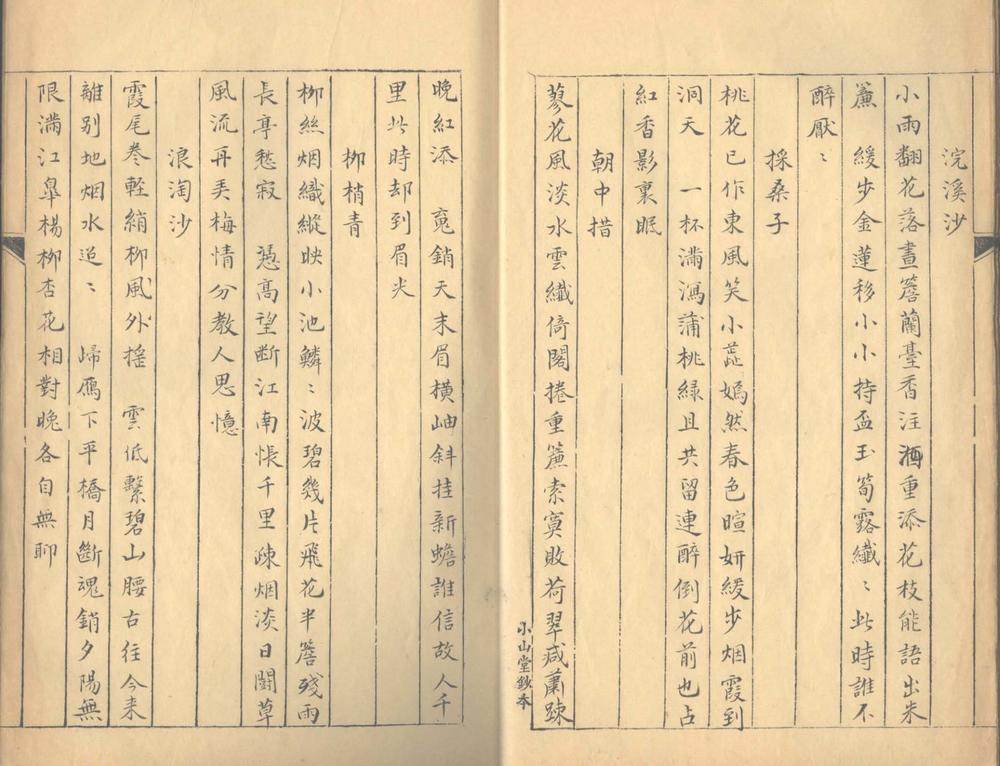 浣溪沙
小雨翻花落畫簷蘭臺香注酒重添花枝能語出朱
簾　緩步金蓮移小小持盃玉筍露纖〻此時誰不
醉厭〻
採桑子
桃花已作東風笑小蕋嫣然春色暄妍緩步烟霞到
洞天　一杯滿瀉蒲桃綠且共留連醉倒花前也占
紅香影裏眠
朝中措
蓼花風淡水雲纖倚閣捲重簾索寞敗荷翠減蕭踈
小山堂鈔本
晚紅添　䰟銷天末眉橫岫斜挂新蟾誰信故人千
里此時却到眉尖
柳梢青
柳絲烟織縱映小池鱗〻波碧幾片飛花半簷殘雨
長亭愁寂　憑高望斷江南悵千里疎烟淡日鬪草
風流再弄梅情分教人思憶
浪淘沙
霞尾卷輕綃柳風外搖　雲低繫碧山腰古往今来
離別地烟水迢〻　歸鴈下平橋月斷魂銷夕陽無
限滿江皐楊柳杏花相對晚各自無聊